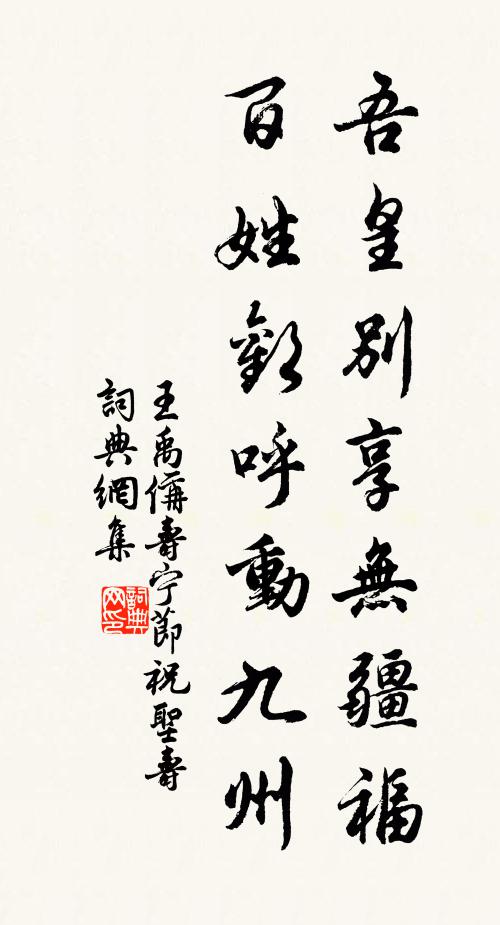 吾皇別享無疆福
百姓歡呼動九州
王禹偁壽宁節祝聖壽
詞典網集
詞典网印